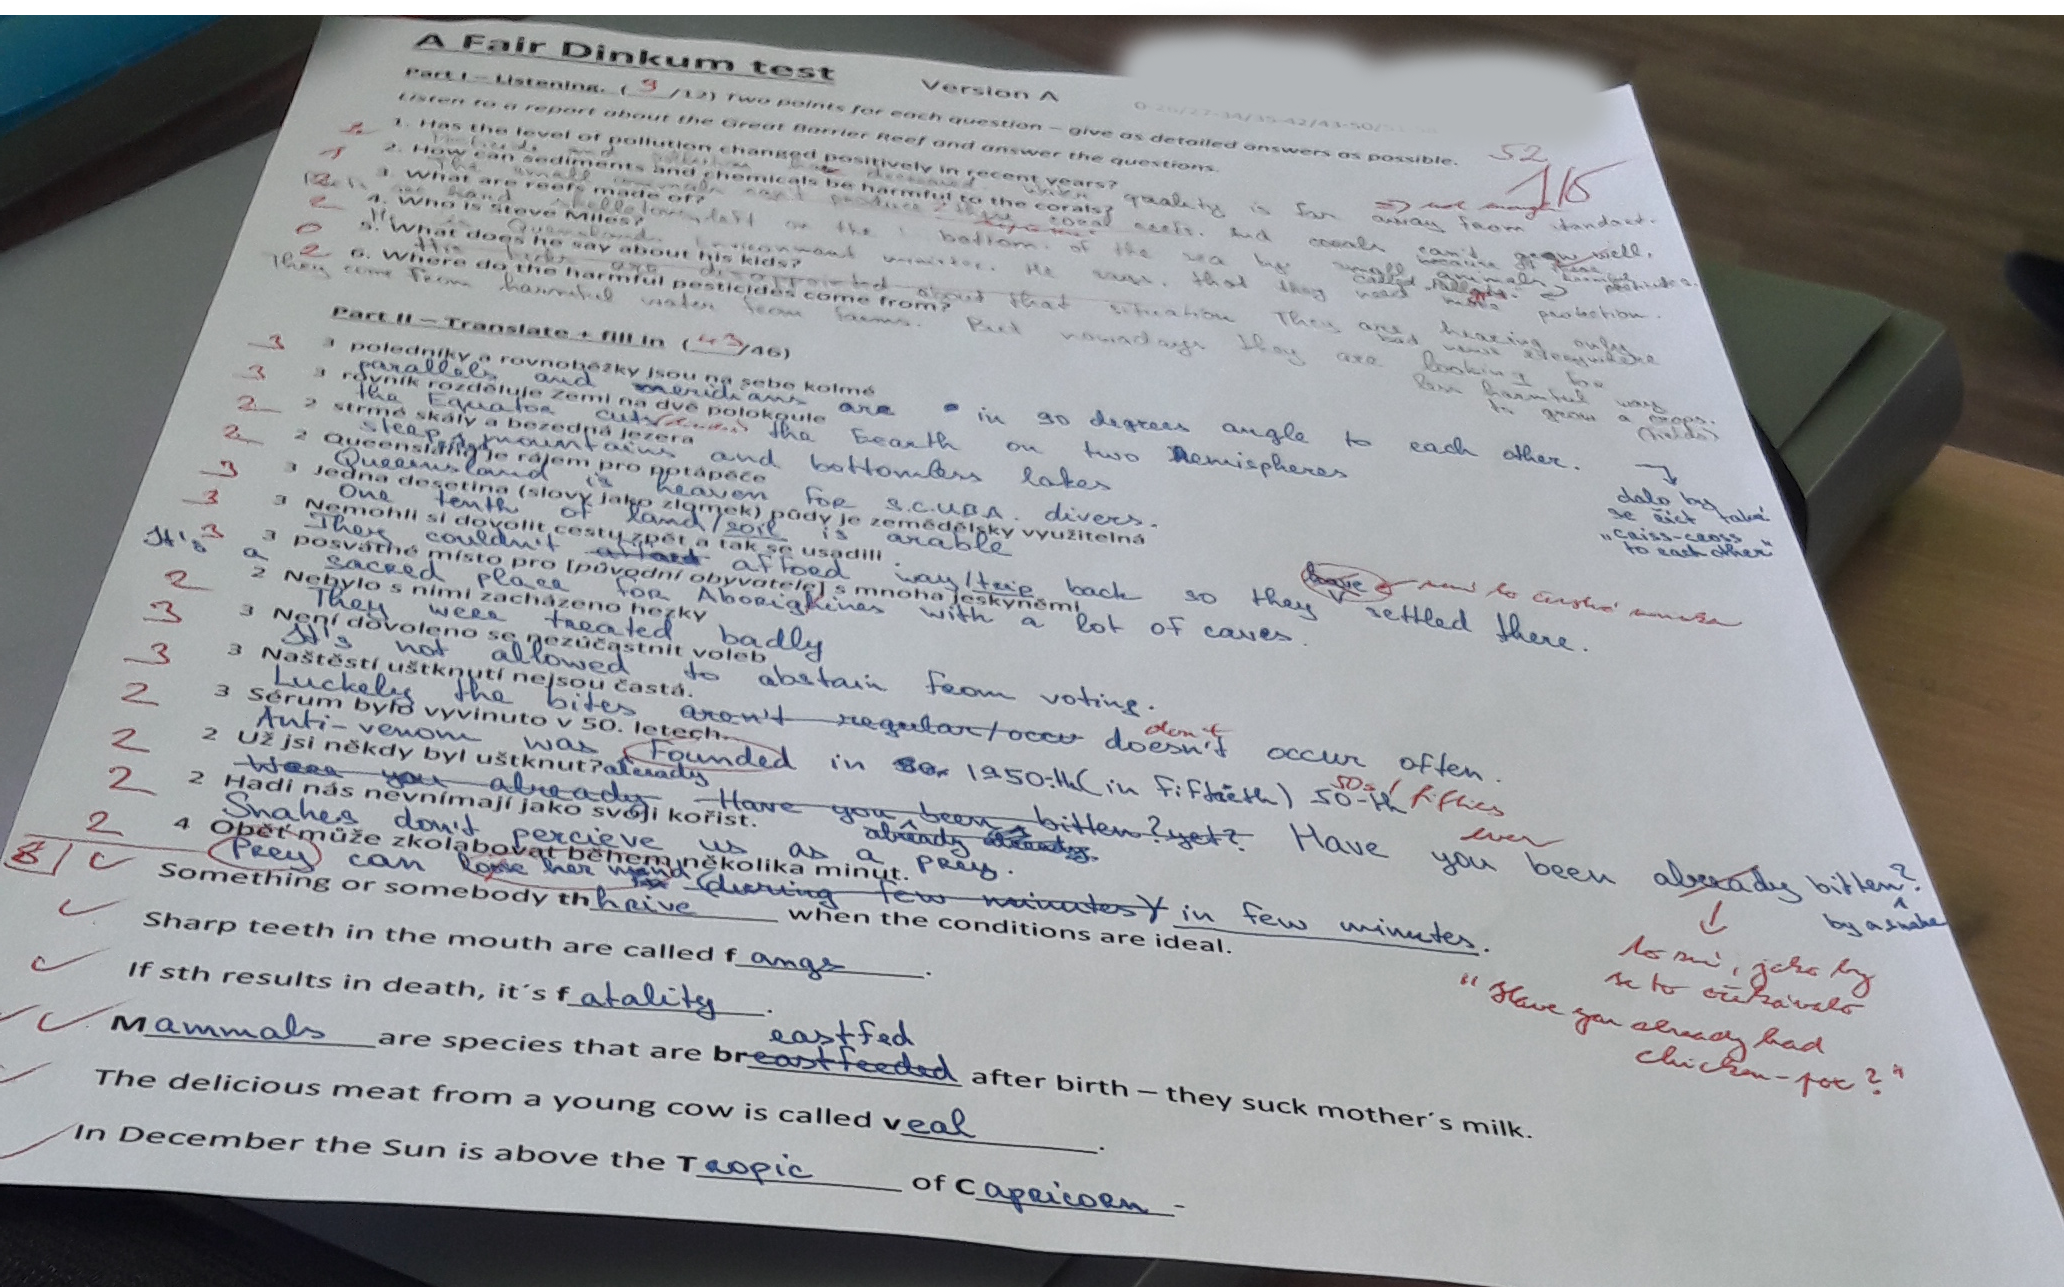 A Fair Dinkum test
Version A
Part I – Listening. ( 9 /12) Two points for each question – give as detailed answers as possible.
Listen to a report about the Great Barrier Reef and answer the questions.
52
1. Has the level of pollution changed positively in recent years?
quality is far away from standard.
2. How can sediments and chemicals be harmful to the corals?
The small animals can't produce reefs. And corals can't grow well,
3. What are reefs made of?
on the bottom of the sea by small animals
2 4. Who is Steve Miles?
He is Queenslands Environment minister. He says that they need more protection.
0 5. What does he say about his kids?
His kids are disappointed about that situation They are hearing only bad news everywhere
2 6. Where do the harmful pesticides come from?
They come from harmful water from farms. But nowadays they are looking for less harmful way to grow a crops. (fields)
Part II – Translate + fill in ( 43 /46)
3 3 poledníky a rovnoběžky jsou na sebe kolmé
parallels and meridians are in 90 degrees angle to each other.
dalo by se říct také "criss-cross to each other"
3 3 rovník rozděluje Zemi na dvě polokoule
the Equator cuts the Eearth on two hemispheres
2 2 strmé skály a bezedná jezera
steep mountains and bottomless lakes
2 2 Queensland je rájem pro potápěče
Queensland is heaven for S.C.U.B.A. divers.
3 3 Jedna desetina (slovy, jako zlomek) půdy je zemědělsky využitelná
One tenth of land/soil is arable
3 3 Nemohli si dovolit cestu zpět a tak se usadili
They couldn't afford way/trip back so they settled there.
3 3 posvátné místo pro [původní obyvatele] s mnoha jeskyněmi
It's a sacred place for Aborigines with a lot of caves.
2 2 Nebylo s nimi zacházeno hezky
They were treated badly
3 3 Není dovoleno se nezúčastnit voleb
It's not allowed to abstain from voting.
3 3 Naštěstí uštknutí nejsou častá.
Luckely the bites aren't regular/occur doesn't occur often.
don't
2 3 Sérum bylo vyvinuto v 50. letech.
Anti-venom was founded in 1950-th (in fiftieth) 50-th
50s / fifties
2 2 Už jsi někdy byl uštknut?
Were you already Have you been bitten? yet? Have you been already bitten?
by a snake
ever
to zní, jako by se to očekávalo
"Have you already had chicken-pox?"
2 2 Hadi nás nevnímají jako svoji kořist.
Snakes don't percieve us as a prey.
2 4 Oběť může zkolabovat během několika minut.
Prey can lose her mind (during few minutes) in few minutes.
8
Something or somebody thhrive when the conditions are ideal.
Sharp teeth in the mouth are called fangs.
If sth results in death, it´s fatality.
Mammals are species that are breastfeeded after birth – they suck mother´s milk.
eastfed
The delicious meat from a young cow is called veal.
In December the Sun is above the Tropic of Capricorn.